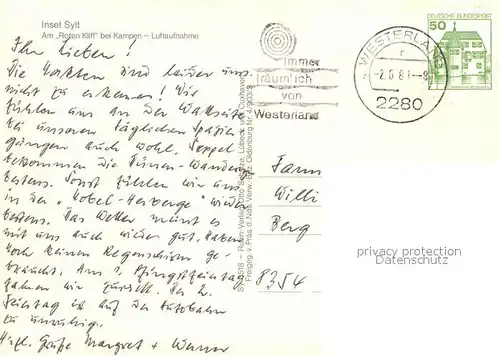 Insel Sylt
Am „Roten Kliff" bei Kampen – Luftaufnahme
Ihr Lieben!
Die Karten sind leider uns
nicht zu erkennen! Wir
fühlen uns an der
bei unseren täglichen Spazier-
gängen auch wohl. Seppel
bekommen die Dünen-Wanderungen
bestens. Sonst fühlen wir uns
in der „Hobel-Herberge" wieder
bestens. Das Wetter meint es
mit uns auch wieder gut. Haben
noch keinen Regenschirm ge-
braucht. Am 2. Pfingstfeiertag
fahren wir zurück. Der 2.
Feiertag ist auf der Autobahn
zu unruhig.
Hzl. Grüße Margret + Werner
immer
träum' ich
von
Westerland
WESTERLAND
2280
DEUTSCHE BUNDESPOST
50
Fam
Willi
Berg
8354
privacy protection
Datenschutz